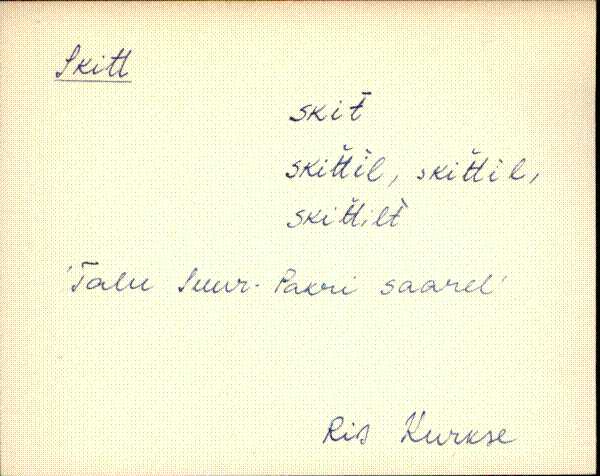 Skitt
skit̄
skit̆t̆il, skit̆t̆il,
skit̆t̆ilt̆
'Talu Suur-Pakri saarel'
Ris Kurkse